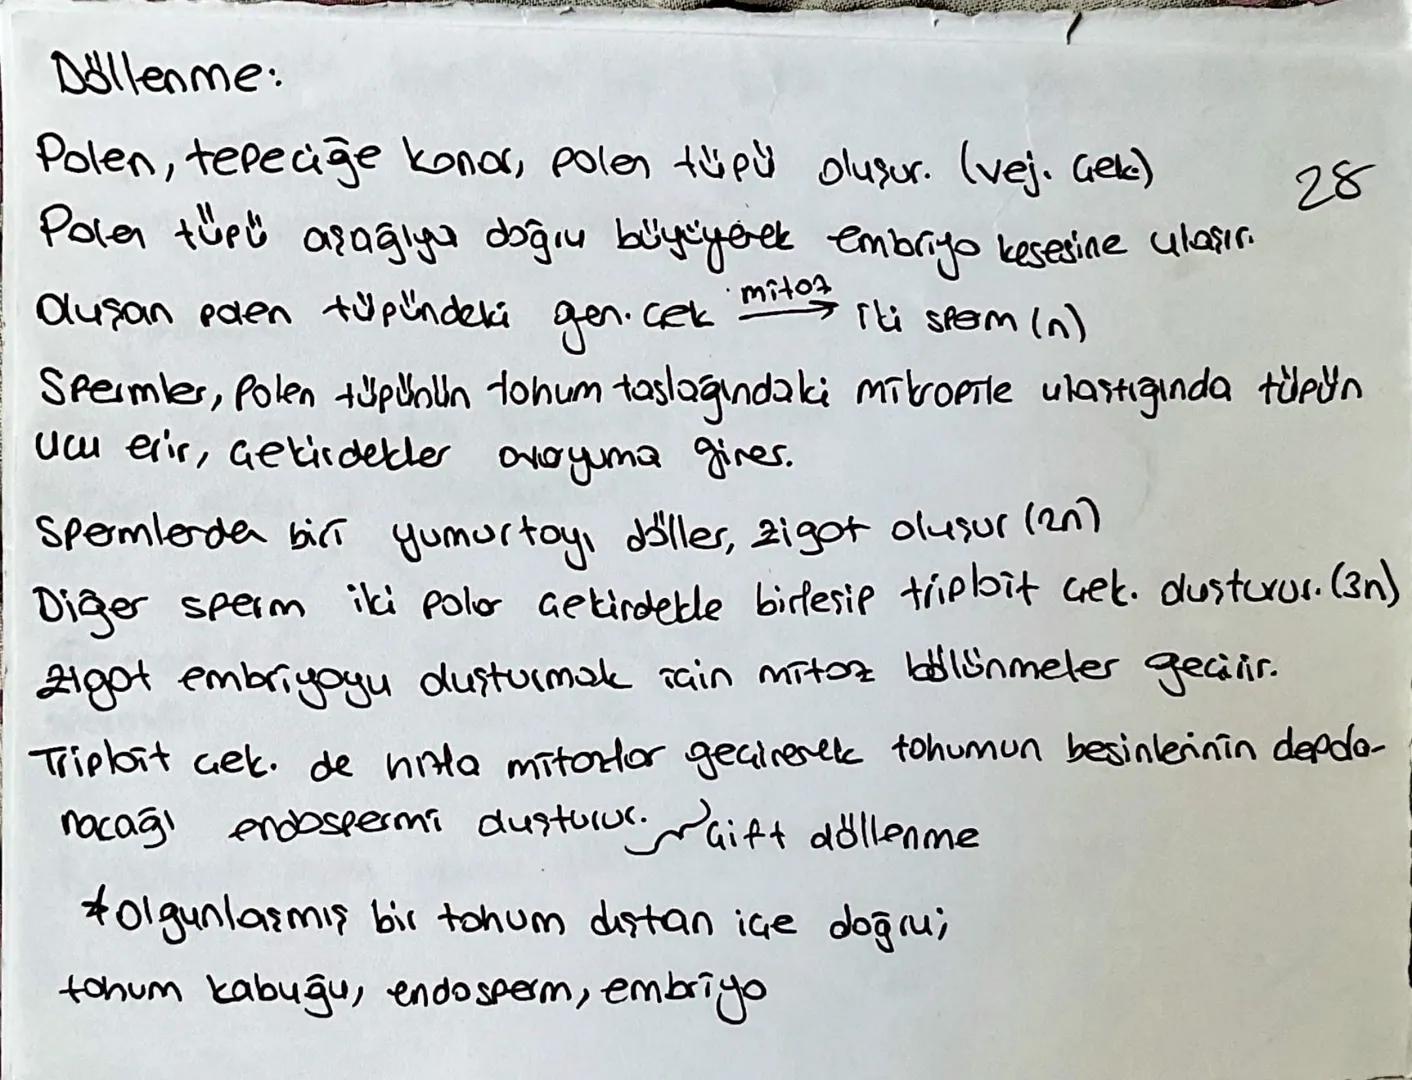 Döllenme:
Polen, tepeciğe konar, polen tüpü oluşur. (vej. çek)
28
Polen tüpü aşağıya doğru büyüyerek embriyo kesesine ulaşır.
Oluşan polen tüpündeki gen. çek mitoz → iki sperm (n)
Spermler, polen tüpünün tohum taslağındaki mikropile ulaştığında tüpün
ucu erir, çekirdekler ovaryuma girer.
Spermlerden biri yumurtayı döller, zigot oluşur (2n)
Diğer sperm iki polar çekirdekle birleşip triploit çek. oluşturur. (3n)
Zigot embriyoyu oluşturmak için mitoz bölünmeler geçirir.
Triploit çek. de hızla mitozlar geçirerek tohumun besinlerinin depola-
nacağı endospermi oluşturur. Çift döllenme
* Olgunlaşmış bir tohum dıştan içe doğru;
tohum kabuğu, endosperm, embriyo